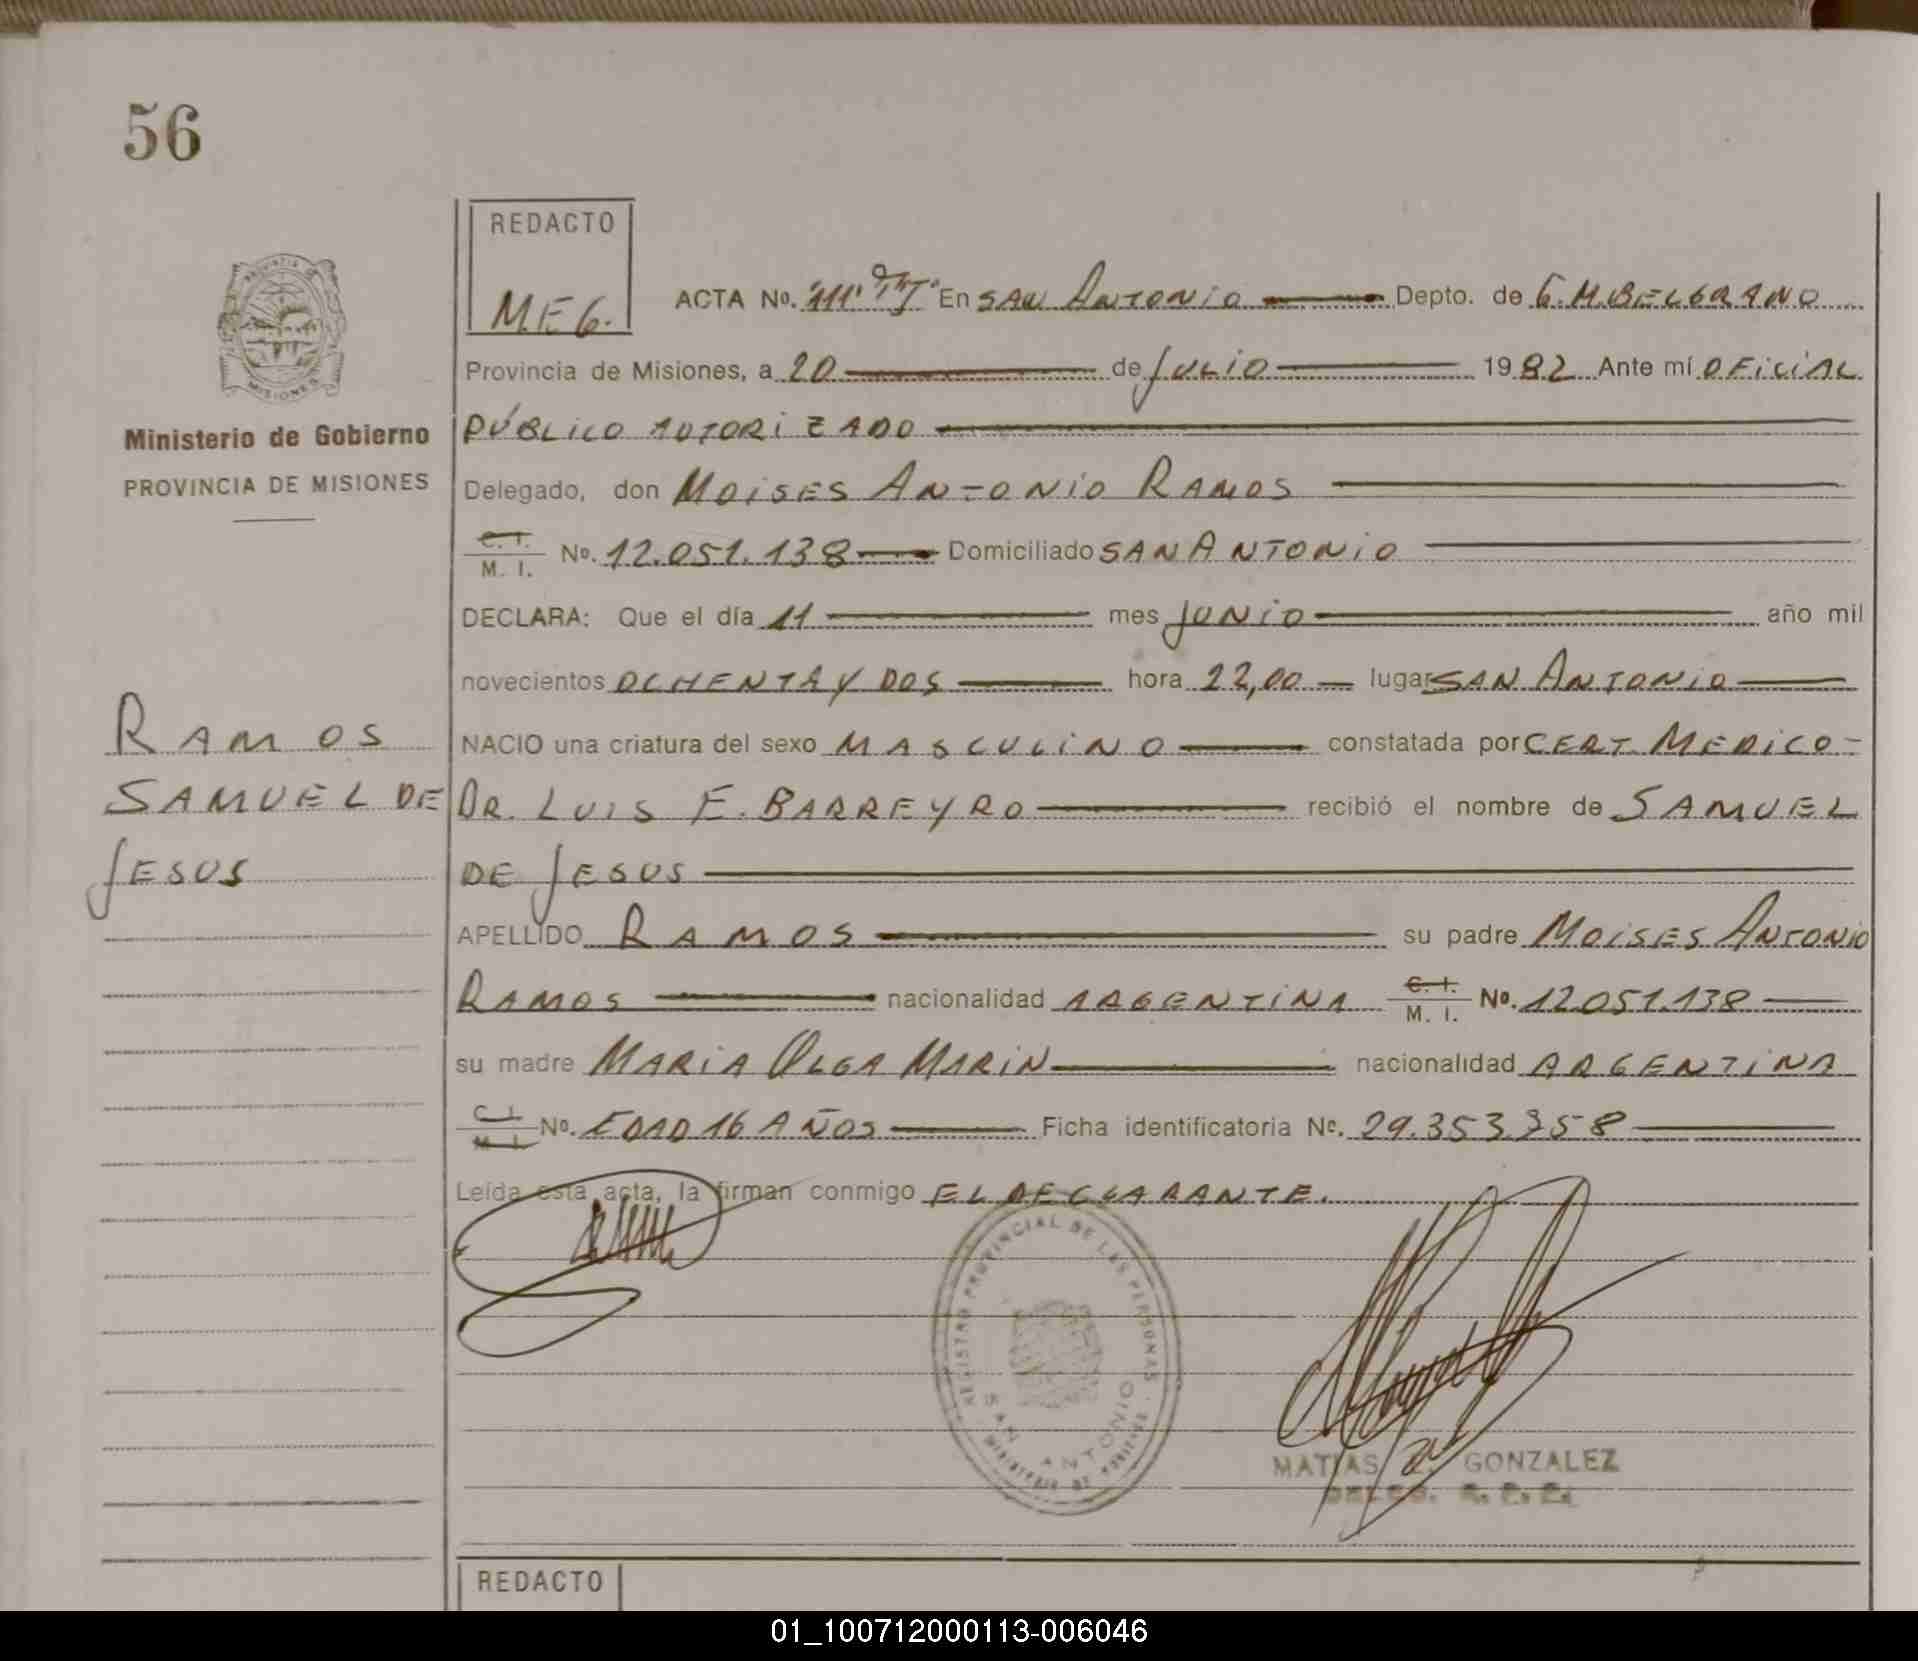 56
REDACTO
M.E.G.
PROVINCIA DE
MISIONES
Ministerio de Gobierno
PROVINCIA DE MISIONES
ACTA No. "111" "T" En SAN ANTONIO Depto. de G. M. BELGRANO
Provincia de Misiones, a 20 de JULIO 1982 Ante mí OFICIAL
PÚBLICO AUTORIZADO
Delegado, don MOISES ANTONIO RAMOS
C. I.
M. I. No. 12.051.138 Domiciliado SAN ANTONIO
DECLARA: Que el día 11 mes JUNIO año mil
novecientos OCHENTA Y DOS hora 22,00 lugar SAN ANTONIO
RAMOS
SAMUEL DE
JESUS
NACIO una criatura del sexo MASCULINO constatada por CERT. MEDICO-
DR. LUIS E. BARREYRO recibió el nombre de SAMUEL
DE JESUS
APELLIDO RAMOS su padre MOISES ANTONIO
RAMOS nacionalidad ARGENTINA C. I. M. I. No. 12.051.138
su madre MARIA OLGA MARIN nacionalidad ARGENTINA
C. I.
M. I. No. EDAD 16 AÑOS Ficha identificatoria No. 29.353.358
Leída esta acta, la firman conmigo EL DECLARANTE.
REGISTRO PROVINCIAL DE LAS PERSONAS
SAN ANTONIO
MINISTERIO DE
MATIAS GONZALEZ
DELEG.
REDACTO
01_100712000113-006046